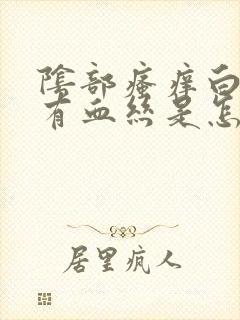 陰部瘙痒白
有血絲是怎
居里疯人